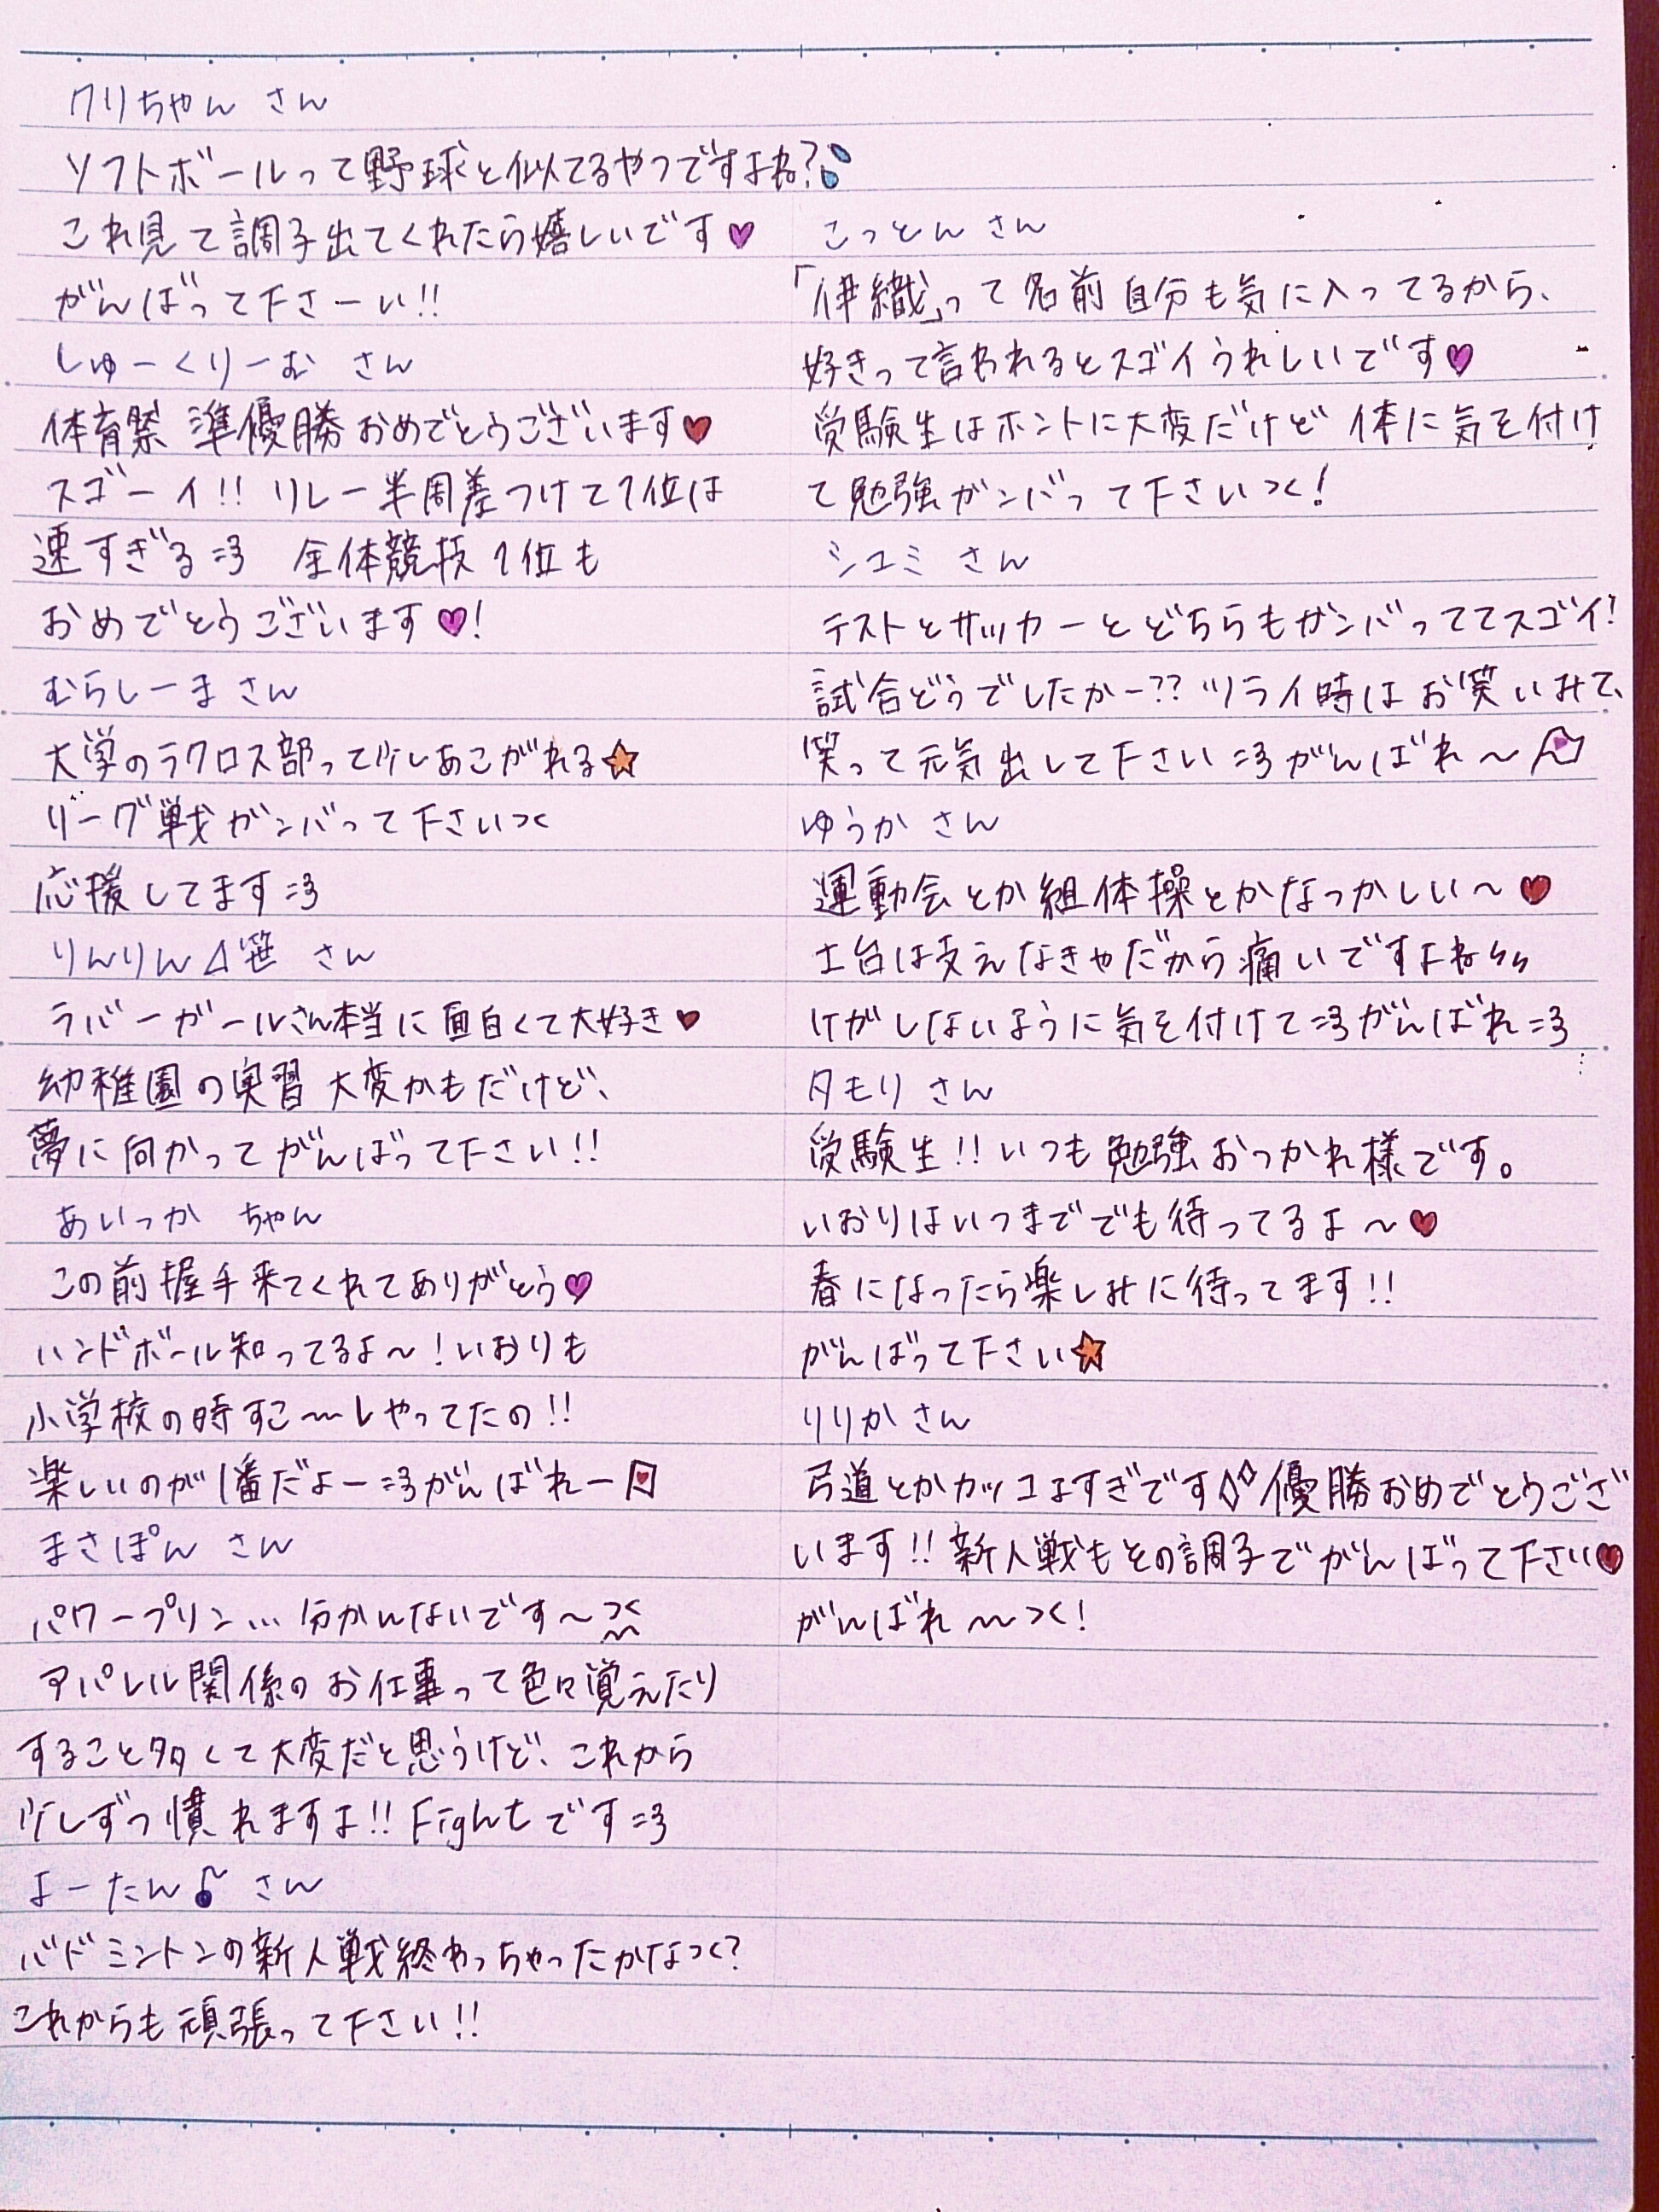 クリちゃん さん
ソフトボールって野球と似てるやつですよね?
これ見て調子出てくれたら嬉しいです♥
がんばって下さーい!!
しゅーくりーむ さん
体育祭 準優勝おめでとうございます♥
スゴーイ!! リレー半周差つけて1位は
速すぎる=3 全体競技1位も
おめでとうございます♥!
むらしーま さん
大学のラクロス部って少しあこがれる☆
リーグ戦ガンバって下さいつく
応援してます=3
りんりん⊿笹 さん
ラバーガールさん本当に面白くて大好き♥
幼稚園の実習 大変かもだけど、
夢に向かってがんばって下さい!!
あいっか ちゃん
この前握手来てくれてありがとう♥
ハンドボール知ってるよ〜!いおりも
小学校の時すこ〜しやってたの!!
楽しいのが1番だよー=3がんばれー
まさぽん さん
パワープリン... 分かんないです〜
アパレル関係のお仕事って色々覚えたり
すること多くて大変だと思うけど、これから
少しずつ慣れますよ!! Fightです=3
よーたん♪ さん
バドミントンの新人戦終わっちゃったかなつく?
これからも頑張って下さい!!
こっとん さん
「伊織」って名前自分も気に入ってるから、
好きって言われるとスゴイうれしいです♥
受験生はホントに大変だけど 体に気を付け
て勉強ガンバって下さいつく!
シユミ さん
テストとサッカーとどちらもガンバっててスゴイ!
試合どうでしたかー?? ツライ時はお笑いみて、
笑って元気出して下さい=3がんばれ〜
ゆうか さん
運動会とか組体操とかなつかしい〜♥
土台は支えなきゃだから痛いですよね
けがしないように気を付けて=3がんばれ=3
タモリ さん
受験生!! いつも勉強おつかれ様です。
いおりはいつまででも待ってるよ〜♥
春になったら楽しみに待ってます!!
がんばって下さい☆
りりか さん
弓道とかカッコよすぎです 優勝おめでとうござ
います!! 新人戦もその調子でがんばって下さい♥
がんばれ〜つく!